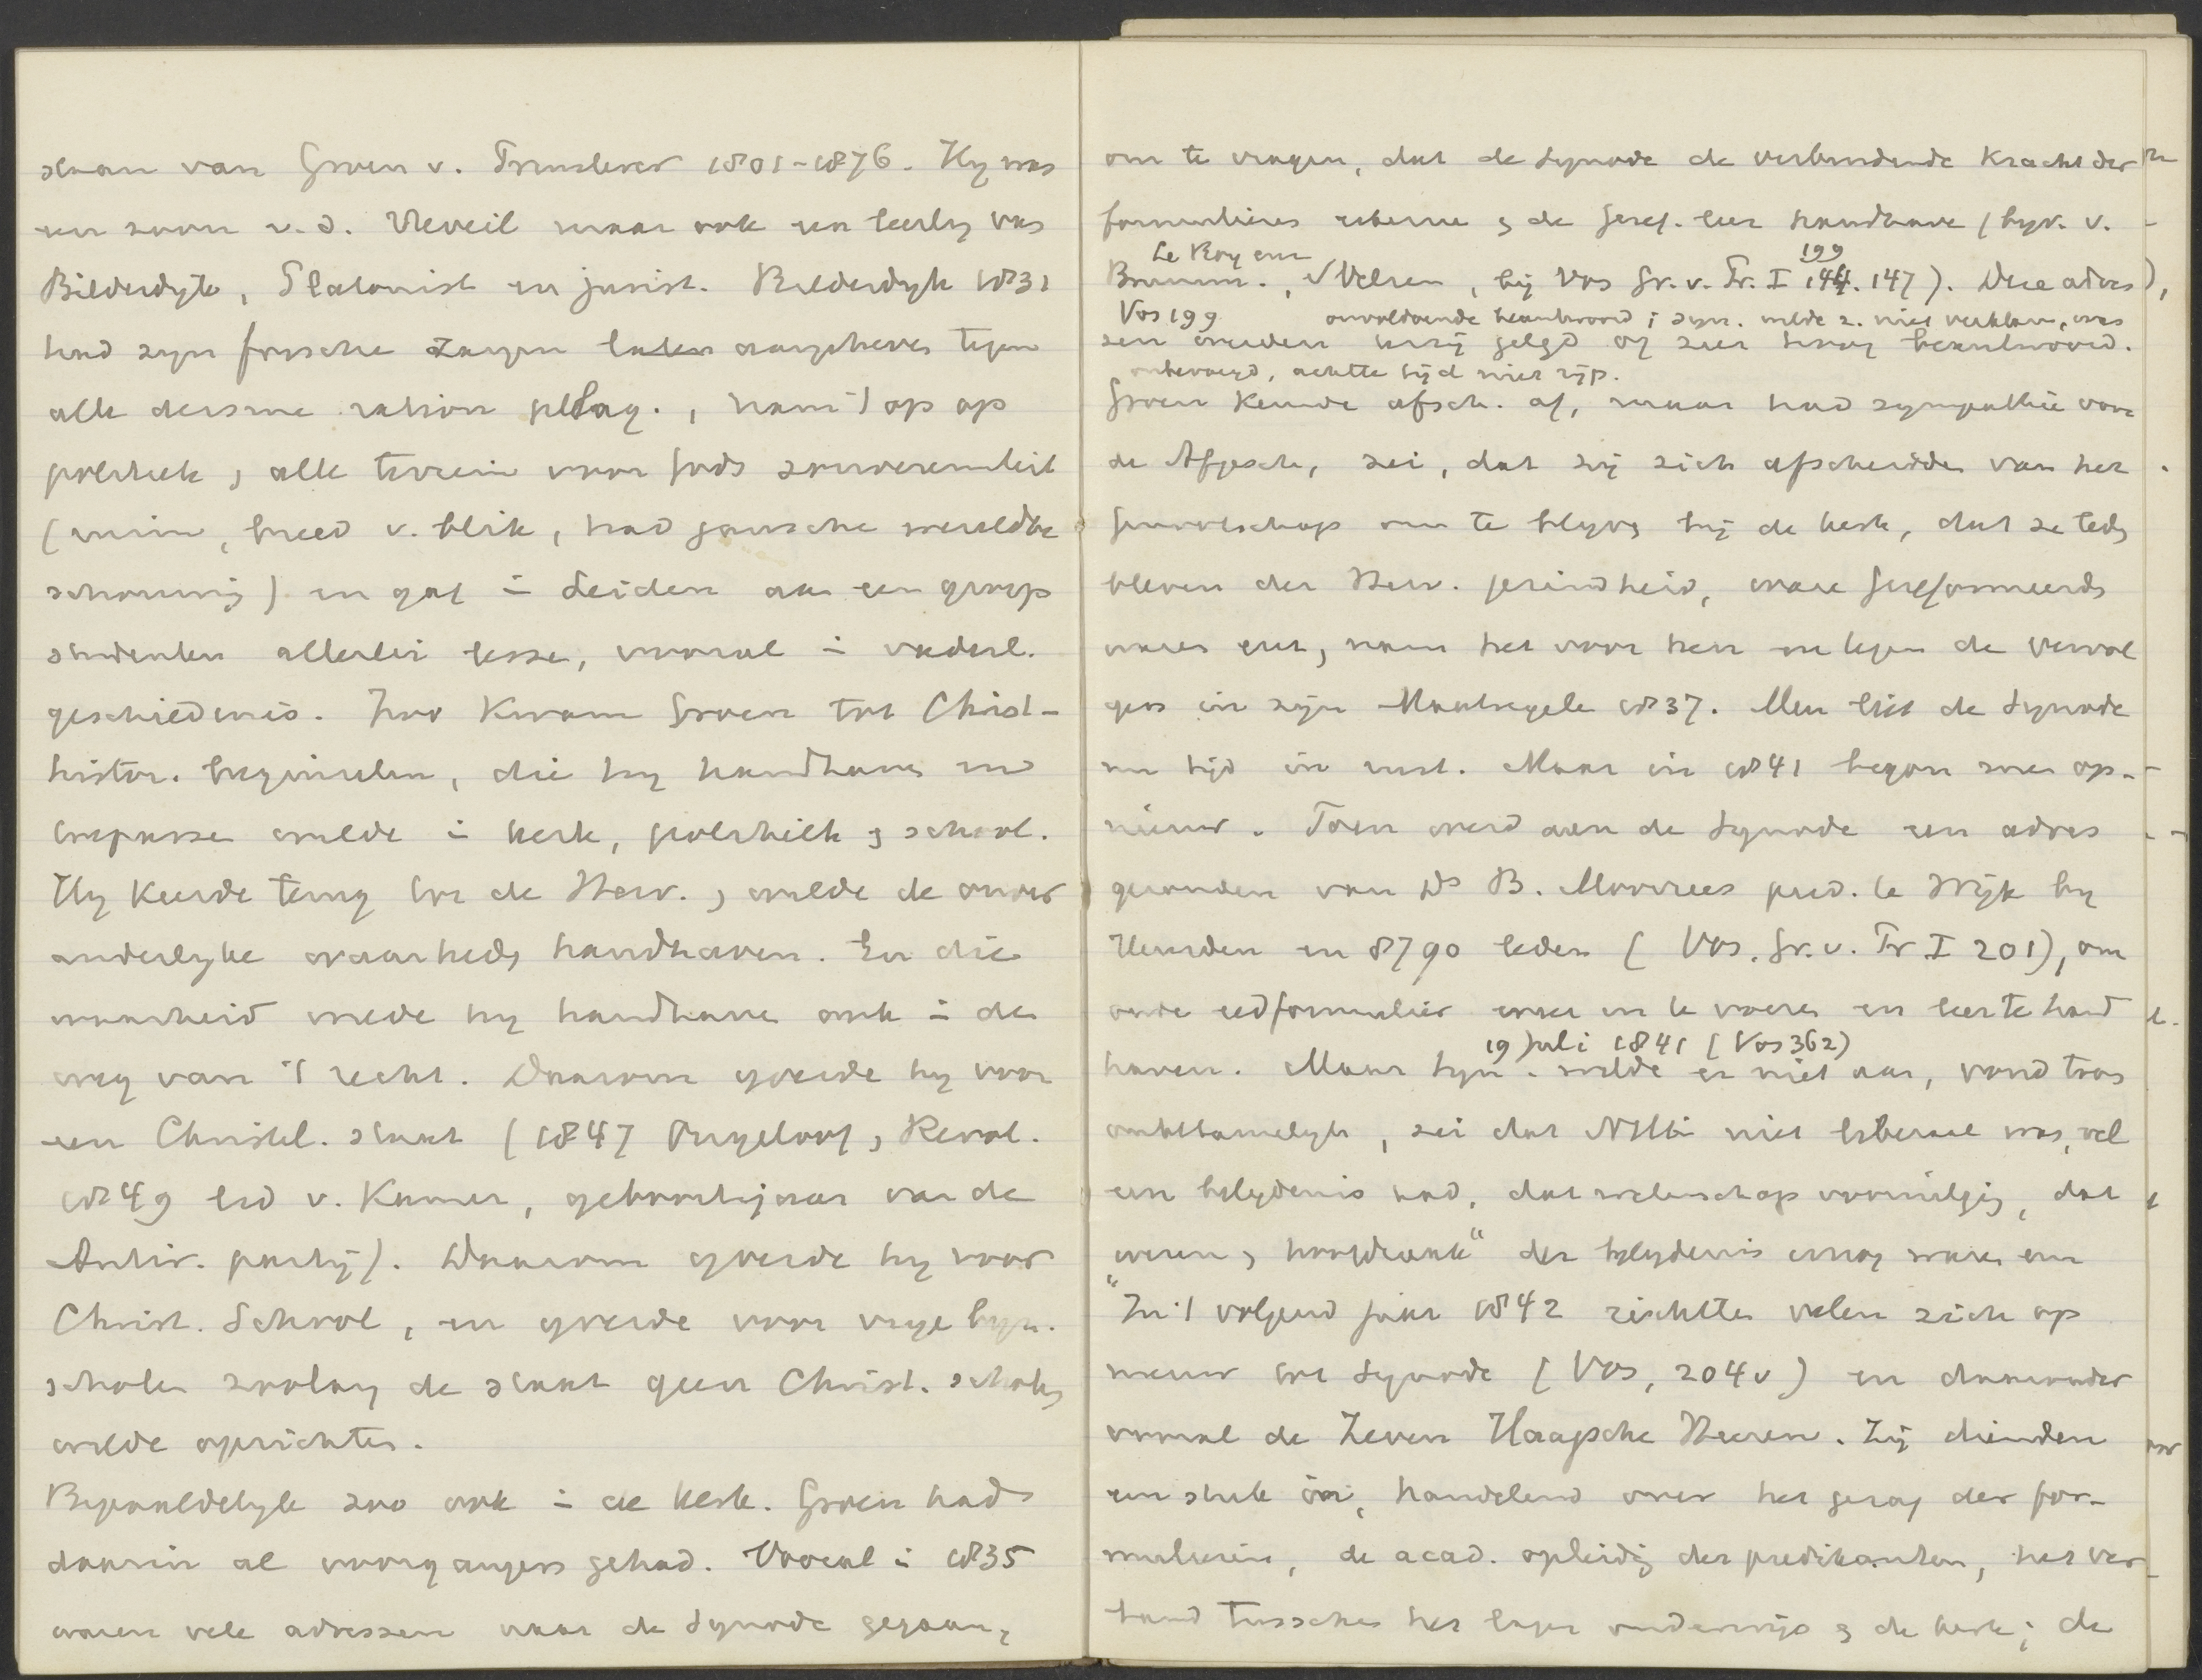 staan van Groen v. Prinsterer 1801-1876. Hy was
een zoon v.d. Reveil maar ook een leerling van
Bilderdyk, Platonist en jurist. Bilderdyk 1831
had zyn frissche zangen laten aangeheven tegen
alle deisme ration pelag., nam 't op op
politiek en alle terrein voor Gods souvereiniteit
(ruim, breed v. blik, had gansche wereldbe
schouwing) en gaf in Leiden aan een groep
studenten allerlei lessen, vooral in vaderl.
geschiedenis. Zoo kwam Groen tot Christ-
histor. beginselen, die hy handhaven en
toepassen wilde in kerk, politiek en school.
Hy keerde terug tot de Herv. en wilde de onver
anderlyke waarheden handhaven. En die
waarheid wilde hy handhaven ook in den
weg van 't recht. Daarom yverde hy voor
een Christel. staat (1847 Ongeloof en Revol.
1849 lid v. Kamer, geboortejaar van de
Antir. party). Daarom yverde hy voor
Christ. School, en yverde voor vrye byz.
scholen zoolang de staat geen Christ. scholen
wilde oprichten.
Bepaaldelyk zoo ook in de kerk. Groen had
daarin al voorgangers gehad. Vooral in 1835
waren vele adressen naar de Synode gegaan,
om te vragen, dat de Synode de verbindende kracht der
formulieren erkenne en de Geref. leer handhave (byv. v.
Le Roy en 199
Brumm., Velsen, bij Vos Gr. v. Pr. I 144. 147). Deze adres
Vos 199 onvoldoende beantwoord; syn. wilde z. niet verklaren, was
sen werden terzij gelegd of zeer vaag beantwoord.
onbevoegd, achtte tijd niet rijp.
Groen keurde afsch. af, maar had sympathie voor
de Afgesch., zei, dat zij zich afscheidden van het
genootschap om te blyven bij de kerk, dat ze leden
bleven der Herv. gezindheid, ware Gereformeerden
waren enz, nam het voor hen op tegen de vervol
gers in zijn Maatregelen 1837. Men liet de Synode
een tijd in rust. Maar in 1841 begon men op-
nieuw. Toen werd aan de Synode een adres
gezonden van Ds B. Moorrees pred. te Wijk by
Heusden en 8790 leden (Vos. Gr. v. Pr I 201), om
oude eedformulier weer in te voeren en leer te hand
19 Juli 1841 (Vos 362)
haven. Maar Syn. wilde er niet aan, vond trous
onbetamelyk, zei dat NHK niet liberaal was, wel
een belydenis had, dat wetenschap vooruitging, dat
wezen en hoofdzaak" der belydenis
"In 't volgend jaar 1842 richtten velen zich op
nieuw tot Synode (Vos, 204v) en daaronder
vooral de Zeven Haagsche Heeren. Zij dienden
een stuk in, handelend over het gezag der for-
mulieren, de acad. opleiding der predikanten, het ver
band tusschen het lager onderwijs en de kerk; de